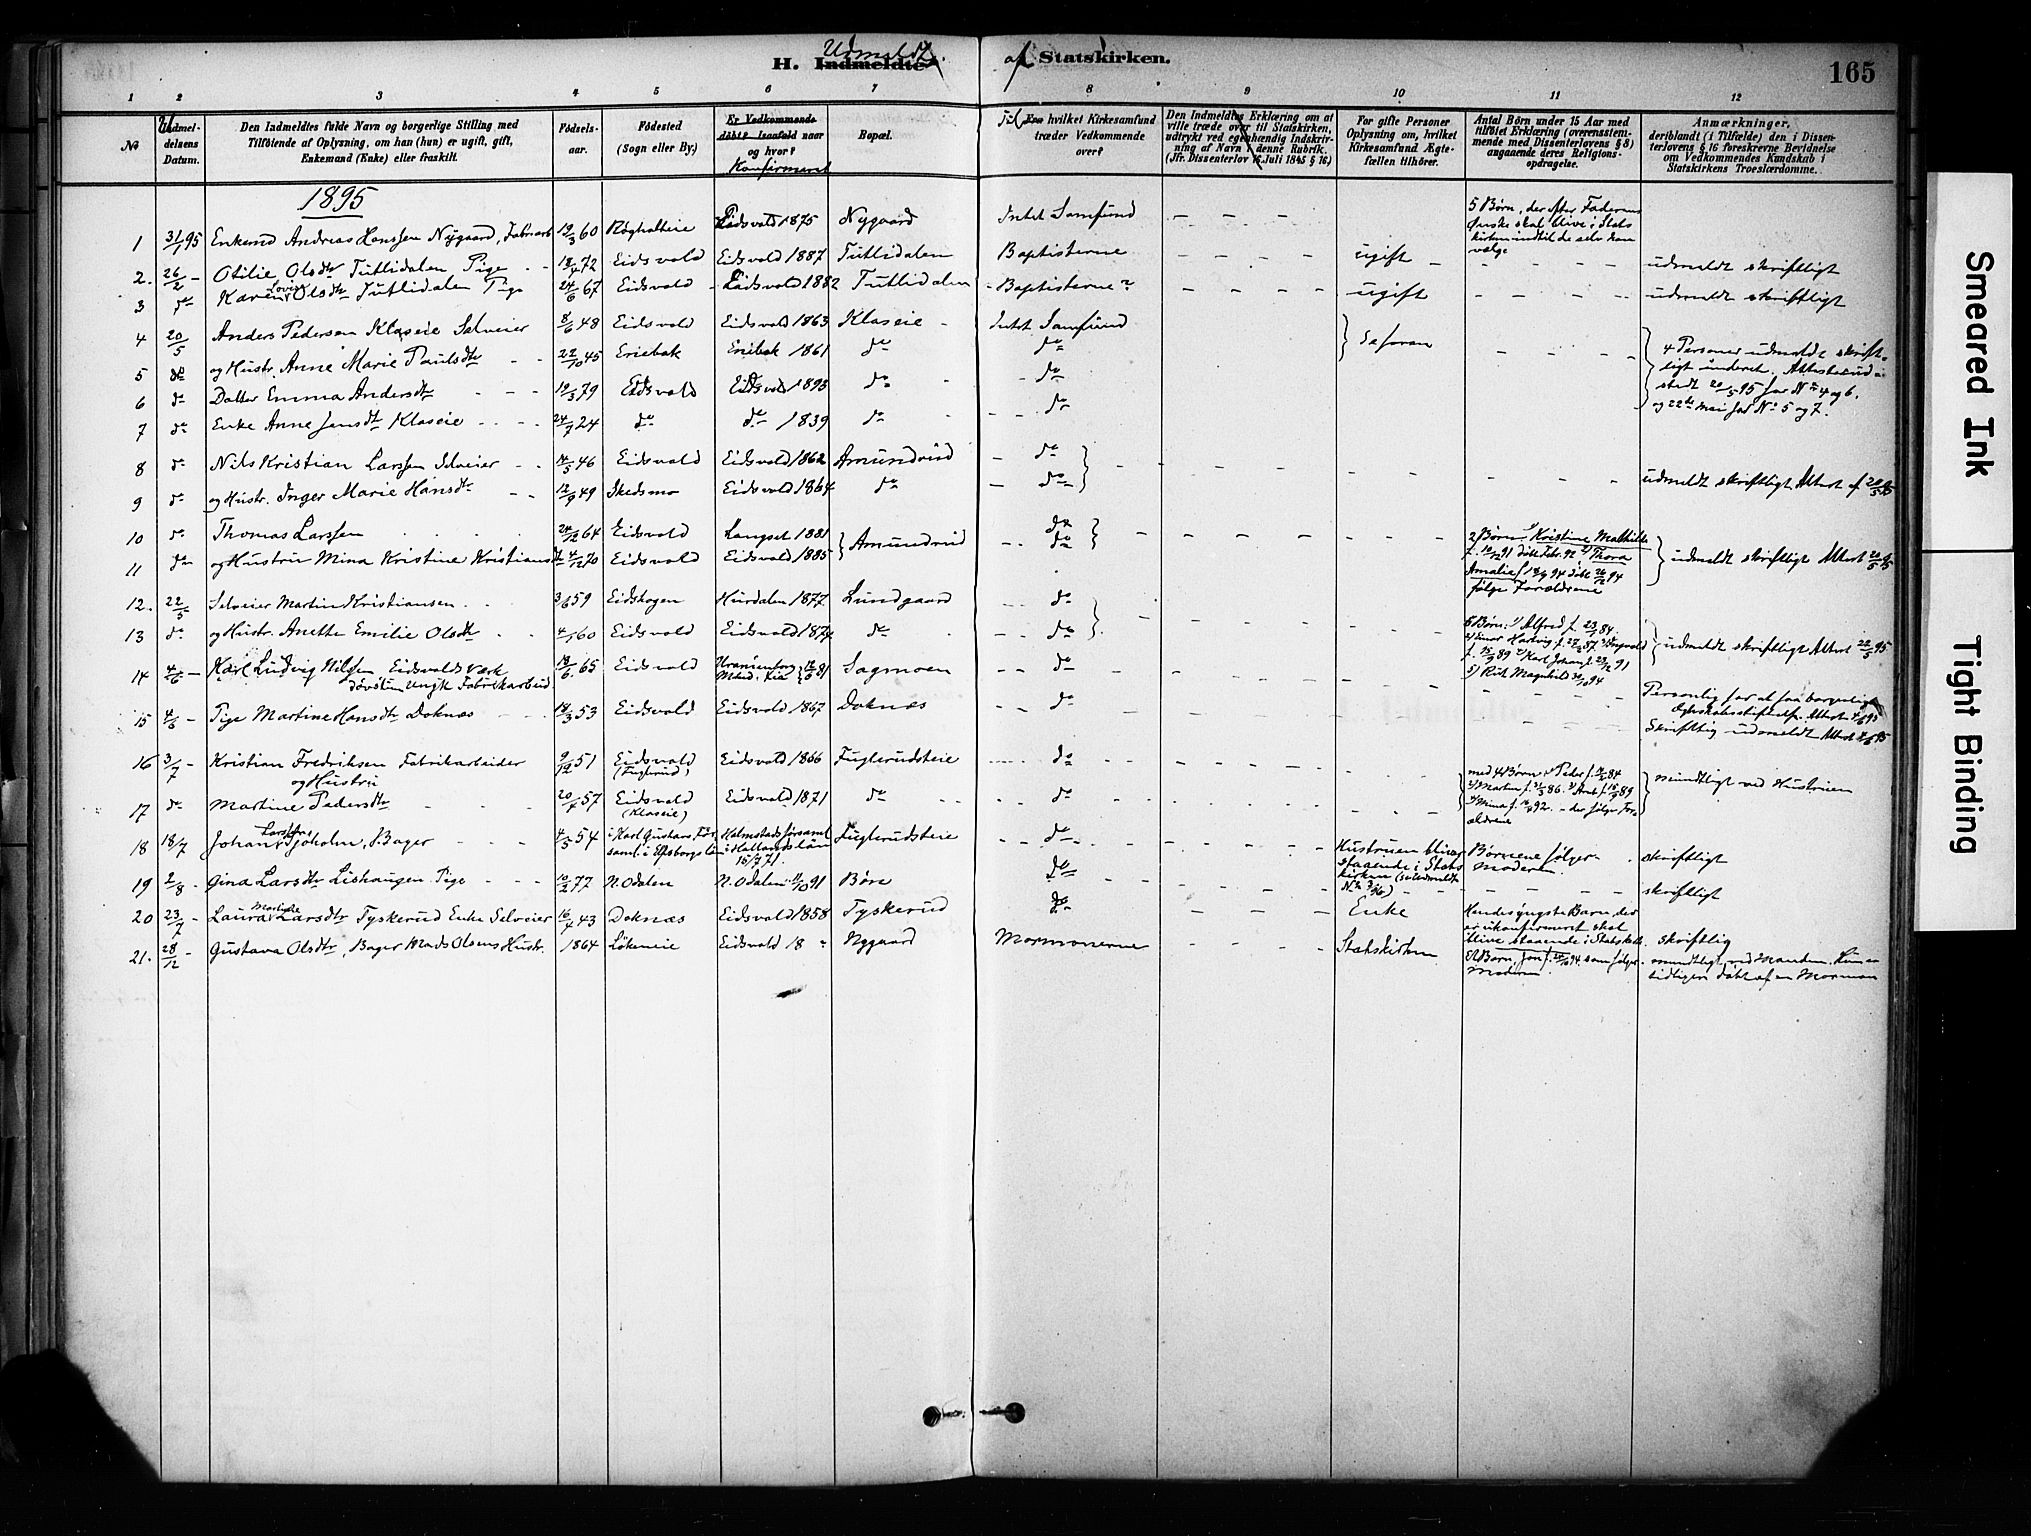 H. Indmeldte Udmeldte af Statskirken.
165
1 2 3 4 5 6 7 8 9 10 11 12
No
Udmeldelsens Datum.
Den Indmeldtes fulde Navn og borgerlige Stilling med
Tilföiende af Oplysning, om han (hun) er ugift, gift,
Enkemand (Enke) eller fraskilt.
Födsels-
aar.
Födested
(Sogn eller By.)
Er Vedkommende
döbt? Isaafald naar
og hvor?
Konfirmeret
Bopæl.
Til hvilket Kirkesamfund
træder Vedkommende
over?
Den Indmeldtes Erklæring om at
ville træde over til Statskirken,
udtrykt ved egenhændig Indskriv-
ning af Navn i denne Rubrik.
(Jfr. Dissenterlov 16 Juli 1845 § 16.)
For gifte Personer
Oplysning om, hvilket
Kirkesamfund Ægte-
fællen tilhörer.
Antal Börn under 15 Aar med
tilföiet Erklæring (overensstem-
mende med Dissenterlovens § 8)
angaaende deres Religions-
opdragelse.
Anmærkninger,
deriblandt (i Tilfælde) den i Dissen-
terlovens § 16 foreskrevne Bevidnelse
om Vedkommendes Kundskab i
Statskirkens Troeslærdomme.
1895
1 31/1 95 Enkemd Andreas Hanssen Nygaard, Fabriarb 19/3 60 Eidsvold 1875 Nygaard Intet Samfund – – – 5 Børn, der efter Faderens
Ønske skal blive i Stats
kirken indtil de selv kan
vælge
2. 26/2 – Otilie Olsdtr Tutlidalen Pige 18/4 72 Eidsvold Eidsvold 1887 Tutlidalen Baptisterne ugift – udmeldt skriftligt
3 do Karen Lovise Olsdtr Tutlidalen Pige 24/6 67 Eidsvold Eidsvold 1882 Tutlidalen Baptisterne ugift – udmeldt skriftligt
4 20/5 Anders Pedersen Klaseie Selveier 8/6 48 Eidsvold Eidsvold 1863 Klaseie Intet Samfund Se foran
5 do og Hustr. Anne Marie Paulsdtr 22/10 45 Enebak Enebak 1861 do do 4 Personer udmeldt skrift-
ligt underet. Attester ud-
6 do Datter Emma Andersdtr 19/3 79 Eidsvold Eidsvold 1893 do do stedt 20/5 95 for No 4 og 6.
7 do Enke Anne Jensdtr Klaseie 24/7 24 do do 1839 do do og 22de mai for No 5 og 7.
8 do Nils Kristian Larssen Selveier 14/5 46 Eidsvold Eidsvold 1862 Amundrud do
9 do og Hustr. Inger Marie Hansdtr 12/9 49 Skedsmo Eidsvold 1864 do do udmeldt skriftligt Attest af 20/5 95
10 do Thomas Larssen 24/12 64 Eidsvold Langset 1881 Amundrud do 2 Børn 1) Kristine Mathilde
11 do og Hustru Mina Kristine Kristiansdtr 4/12 70 Eidsvold Eidsvold 1885 do f. 10/12 91 døbt Febr. 92 2) Thora
Amalie f. 18/9 94 døbt 26/12 94
følge Forældrene
udmeldt skriftligt Attest 20/5 95
12. 22/5 Selveier Martin Kristiansen 3/6 59 Eidskogen Hurdalen 1877 Lundgaard do
13 do og Hustr. Anette Emilie Olsdtr 4/1 60 Eidsvold Eidsvold 1874 do do 5 Børn: 1) Alfred f. 23/1 84
f. 15/9 89 4) Karl Johan f. 23/12 91
5) Rut Magnhild 30/10 94
udmeldt skriftligt Attest 22/5 95
14 4/6 – Karl Ludvig Nilsen Eidsvolds Værk
Døvstum Ungk Fabrikarbeid. 18/6 65 Eidsvold Sagmoen do
Personlig for at faa borgerlig
Ægteskabsstiftelse. Attest 4/6 95
15 4/6 – Pige Martine Hansdtr Doknæs 18/3 53 Eidsvold Eidsvold 1867 Doknæs do Skriftlig udmeldt Attest 4/6 95
16 3/7 – Kristian Fredriksen Fabrikarbeider
og Hustru 9/12 51 Eidsvold
(Fuglerud) Eidsvold 1866 Fuglerudsteie do med 4 Børn 1) Peder f. 14/2 84
17 do Martine Pedersdtr 20/7 57 Eidsvold
(Klaseie) Eidsvold 1871 do do der følger For-
ældrene
mundtligt ved Hustruen
18 18/7 Johan Larssøn Sjöholm, Bager 4/5 54 i Karl Gustavs För
saml. i Elfsborgs län Halmstads församl
i Hallands län
15/7 71. Fuglerudsteie do Hustruen bliver
staaende i Stats
kirken (se Udmeldte
No 3/96) Børnene følger
Moderen. skriftligt
19 2/8 – Gina Larsdtr Lishaugen Pige 10/2 77 N. Odalen N. Odalen 11/10 91 Børe do skriftligt
20 23/7 – Laura Marthine Larsdtr Tyskerud Enke Selveier 16/4 43 Doknæs Eidsvold 1858 Tyskerud do Enke Hendes yngste Barn, der
er ukonfirmeret skal
blive staaende i Statskirk. skriftlig
21. 28/12 – Gustava Olsdtr, Bager Mads Olsens Hustr. 1864 Løkeneie Eidsvold 18 Nygaard Mormonerne Statskirken som følger
Moderen. mundtligt ved Manden. Hun er
tidligere døbt af en Mormon
Smeared Ink
Tight Binding